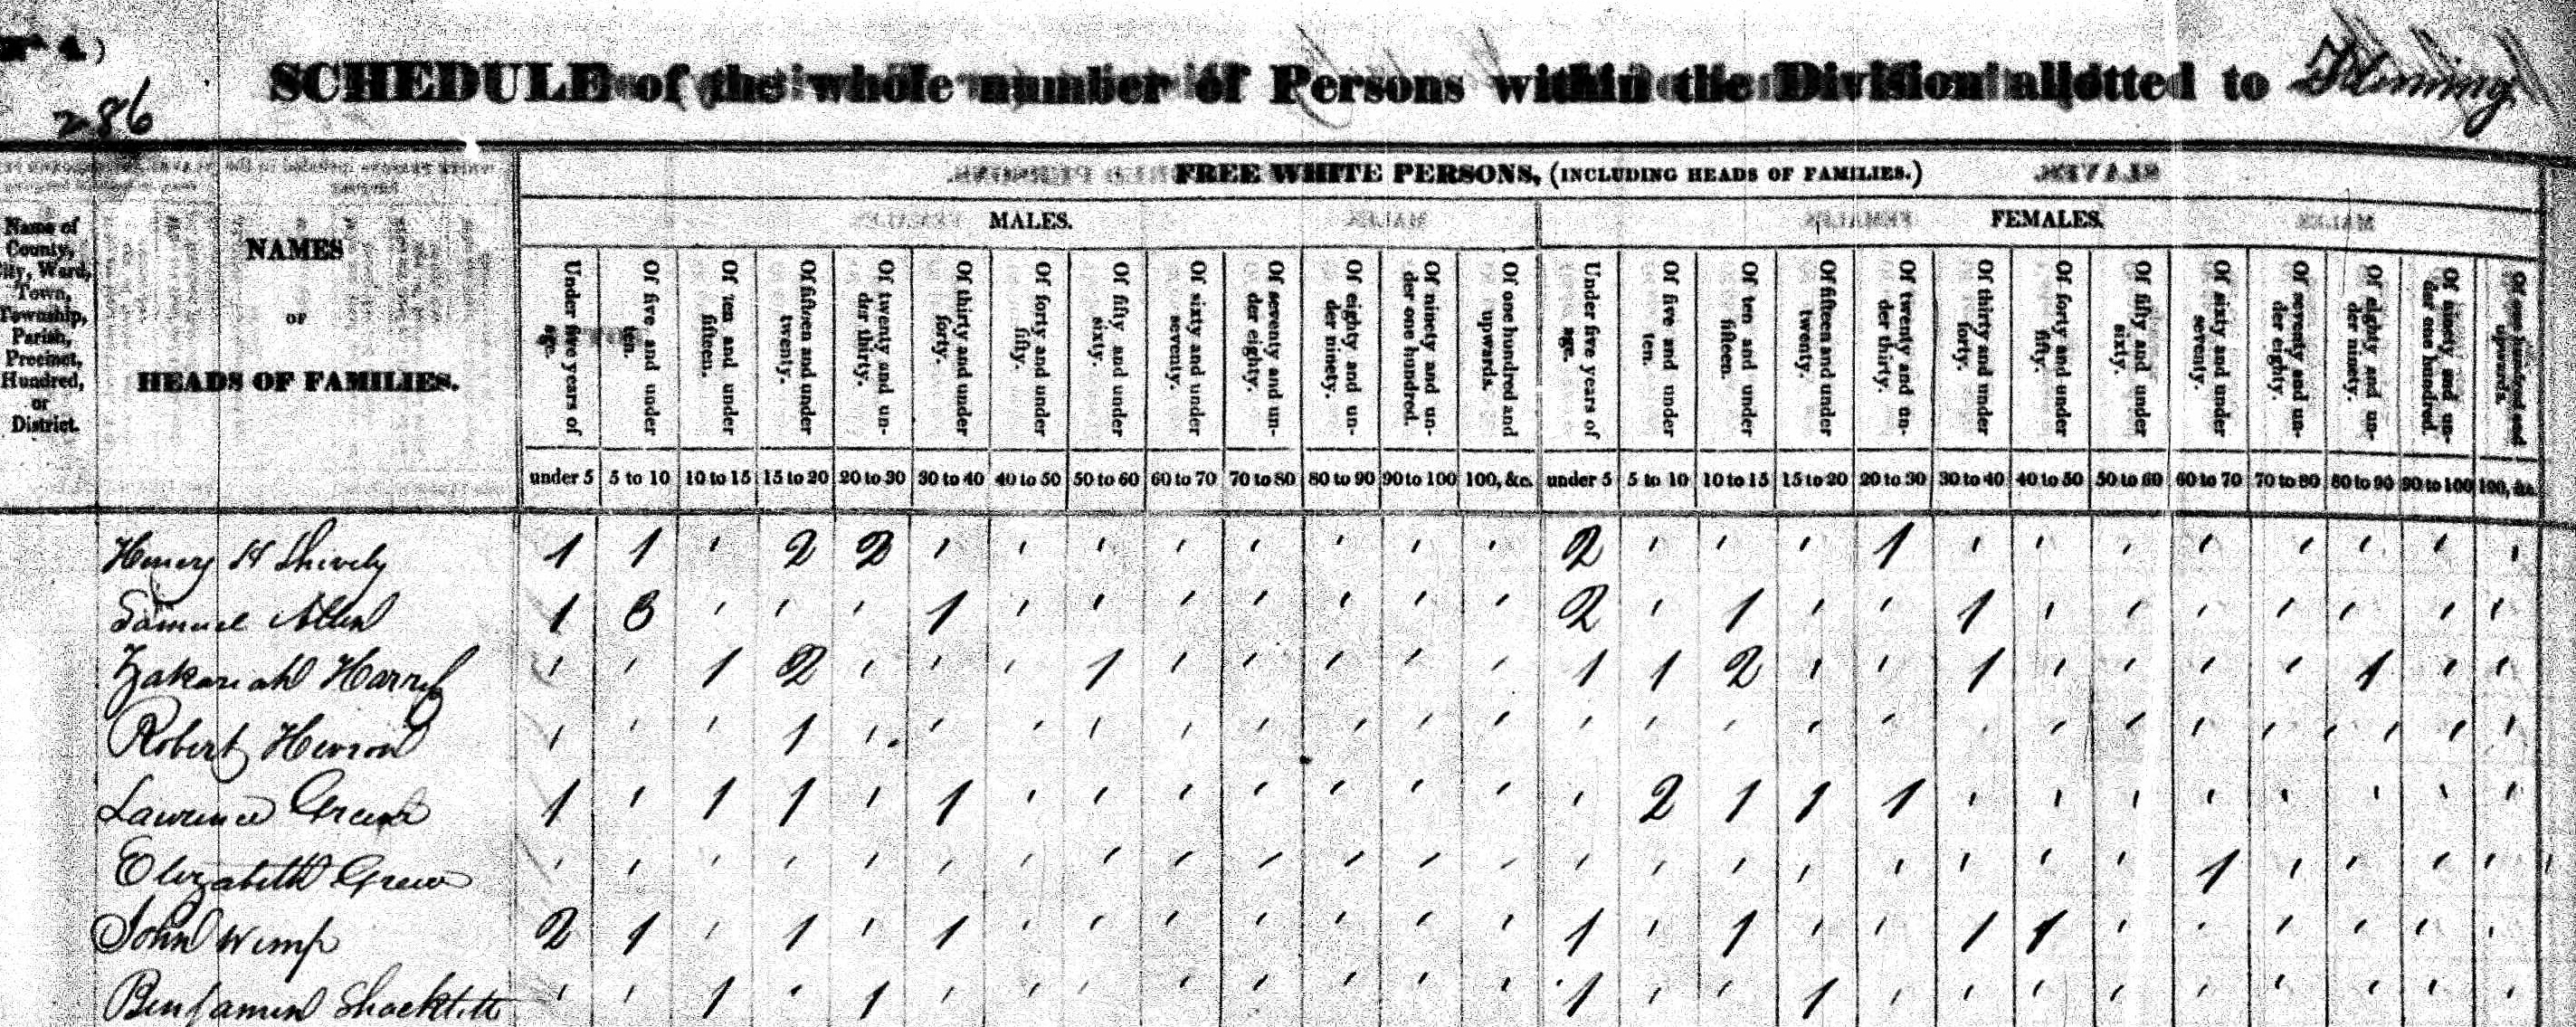 4.)
286
SCHEDULE of the whole number of Persons within the Division allotted to Fleming
FREE WHITE PERSONS, (INCLUDING HEADS OF FAMILIES.)
MALES. FEMALES.
Name of County, City, Ward, Town, Township, Parish, Precinct, Hundred, or District.
NAMES
OF
HEADS OF FAMILIES.
Under five years of age. Of five and under ten. Of ten and under fifteen. Of fifteen and under twenty. Of twenty and under thirty. Of thirty and under forty. Of forty and under fifty. Of fifty and under sixty. Of sixty and under seventy. Of seventy and under eighty. Of eighty and under ninety. Of ninety and under one hundred. Of one hundred and upwards. Under five years of age. Of five and under ten. Of ten and under fifteen. Of fifteen and under twenty. Of twenty and under thirty. Of thirty and under forty. Of forty and under fifty. Of fifty and under sixty. Of sixty and under seventy. Of seventy and under eighty. Of eighty and under ninety. Of ninety and under one hundred. Of one hundred and upwards.
under 5 5 to 10 10 to 15 15 to 20 20 to 30 30 to 40 40 to 50 50 to 60 60 to 70 70 to 80 80 to 90 90 to 100 100, &c. under 5 5 to 10 10 to 15 15 to 20 20 to 30 30 to 40 40 to 50 50 to 60 60 to 70 70 to 80 80 to 90 90 to 100 100, &c.
Henry H Shively 1 1 2 2 2 1
Samuel Allen 1 3 1 2 1 1
Zakariah Harris 1 2 1 1 1 2 1 1
Robert 1
Lawrence 1 1 1 1 2 1 1 1
Elizabeth 1
John Wimp 2 1 1 1 1 1 1 1
Benjamin 1 1 1 1